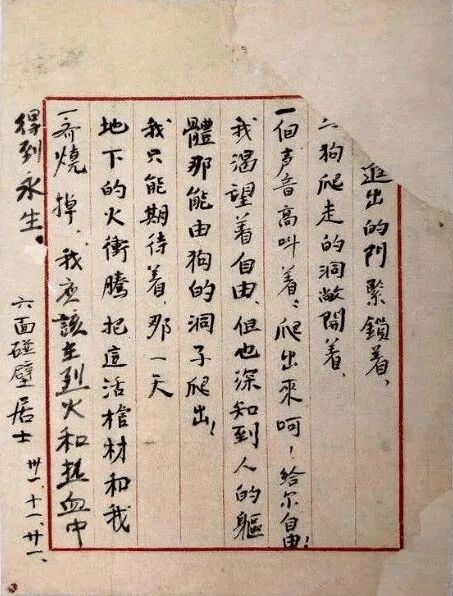 進出的门緊鎖着、
狗爬走的洞敞開着、
一個声音高叫着：爬出來呵！给尔自由！
我渴望着自由、但也深知到人的軀
體那能由狗的洞子爬出！
我只能期待着、那一天
地下的火衝騰把這活棺材和我
一齊燒掉、我應該在烈火和熱血中
得到永生。
六面碰壁居士 卅一、十一、廿一、